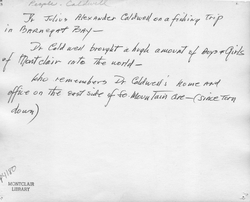 People - Caldwell
Dr Julius Alexander Caldwell on a fishing trip
in Barnegat Bay —
Dr Caldwell brought a high amount of Boys & Girls
of Montclair into the world —
Who remembers Dr Caldwell's home and
office on the east side of So Mountain Ave — (since torn
down)
MONTCLAIR
LIBRARY